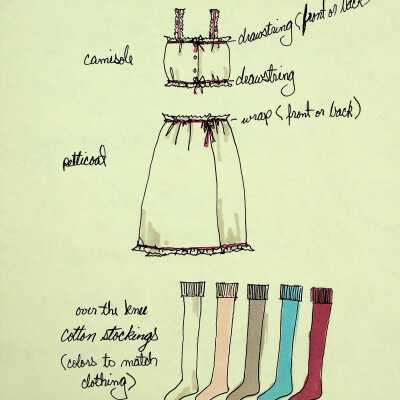 drawstring (front or back)
camisole
drawstring
wrap (front or back)
petticoat
over the knee
cotton stockings
(colors to match
clothing)